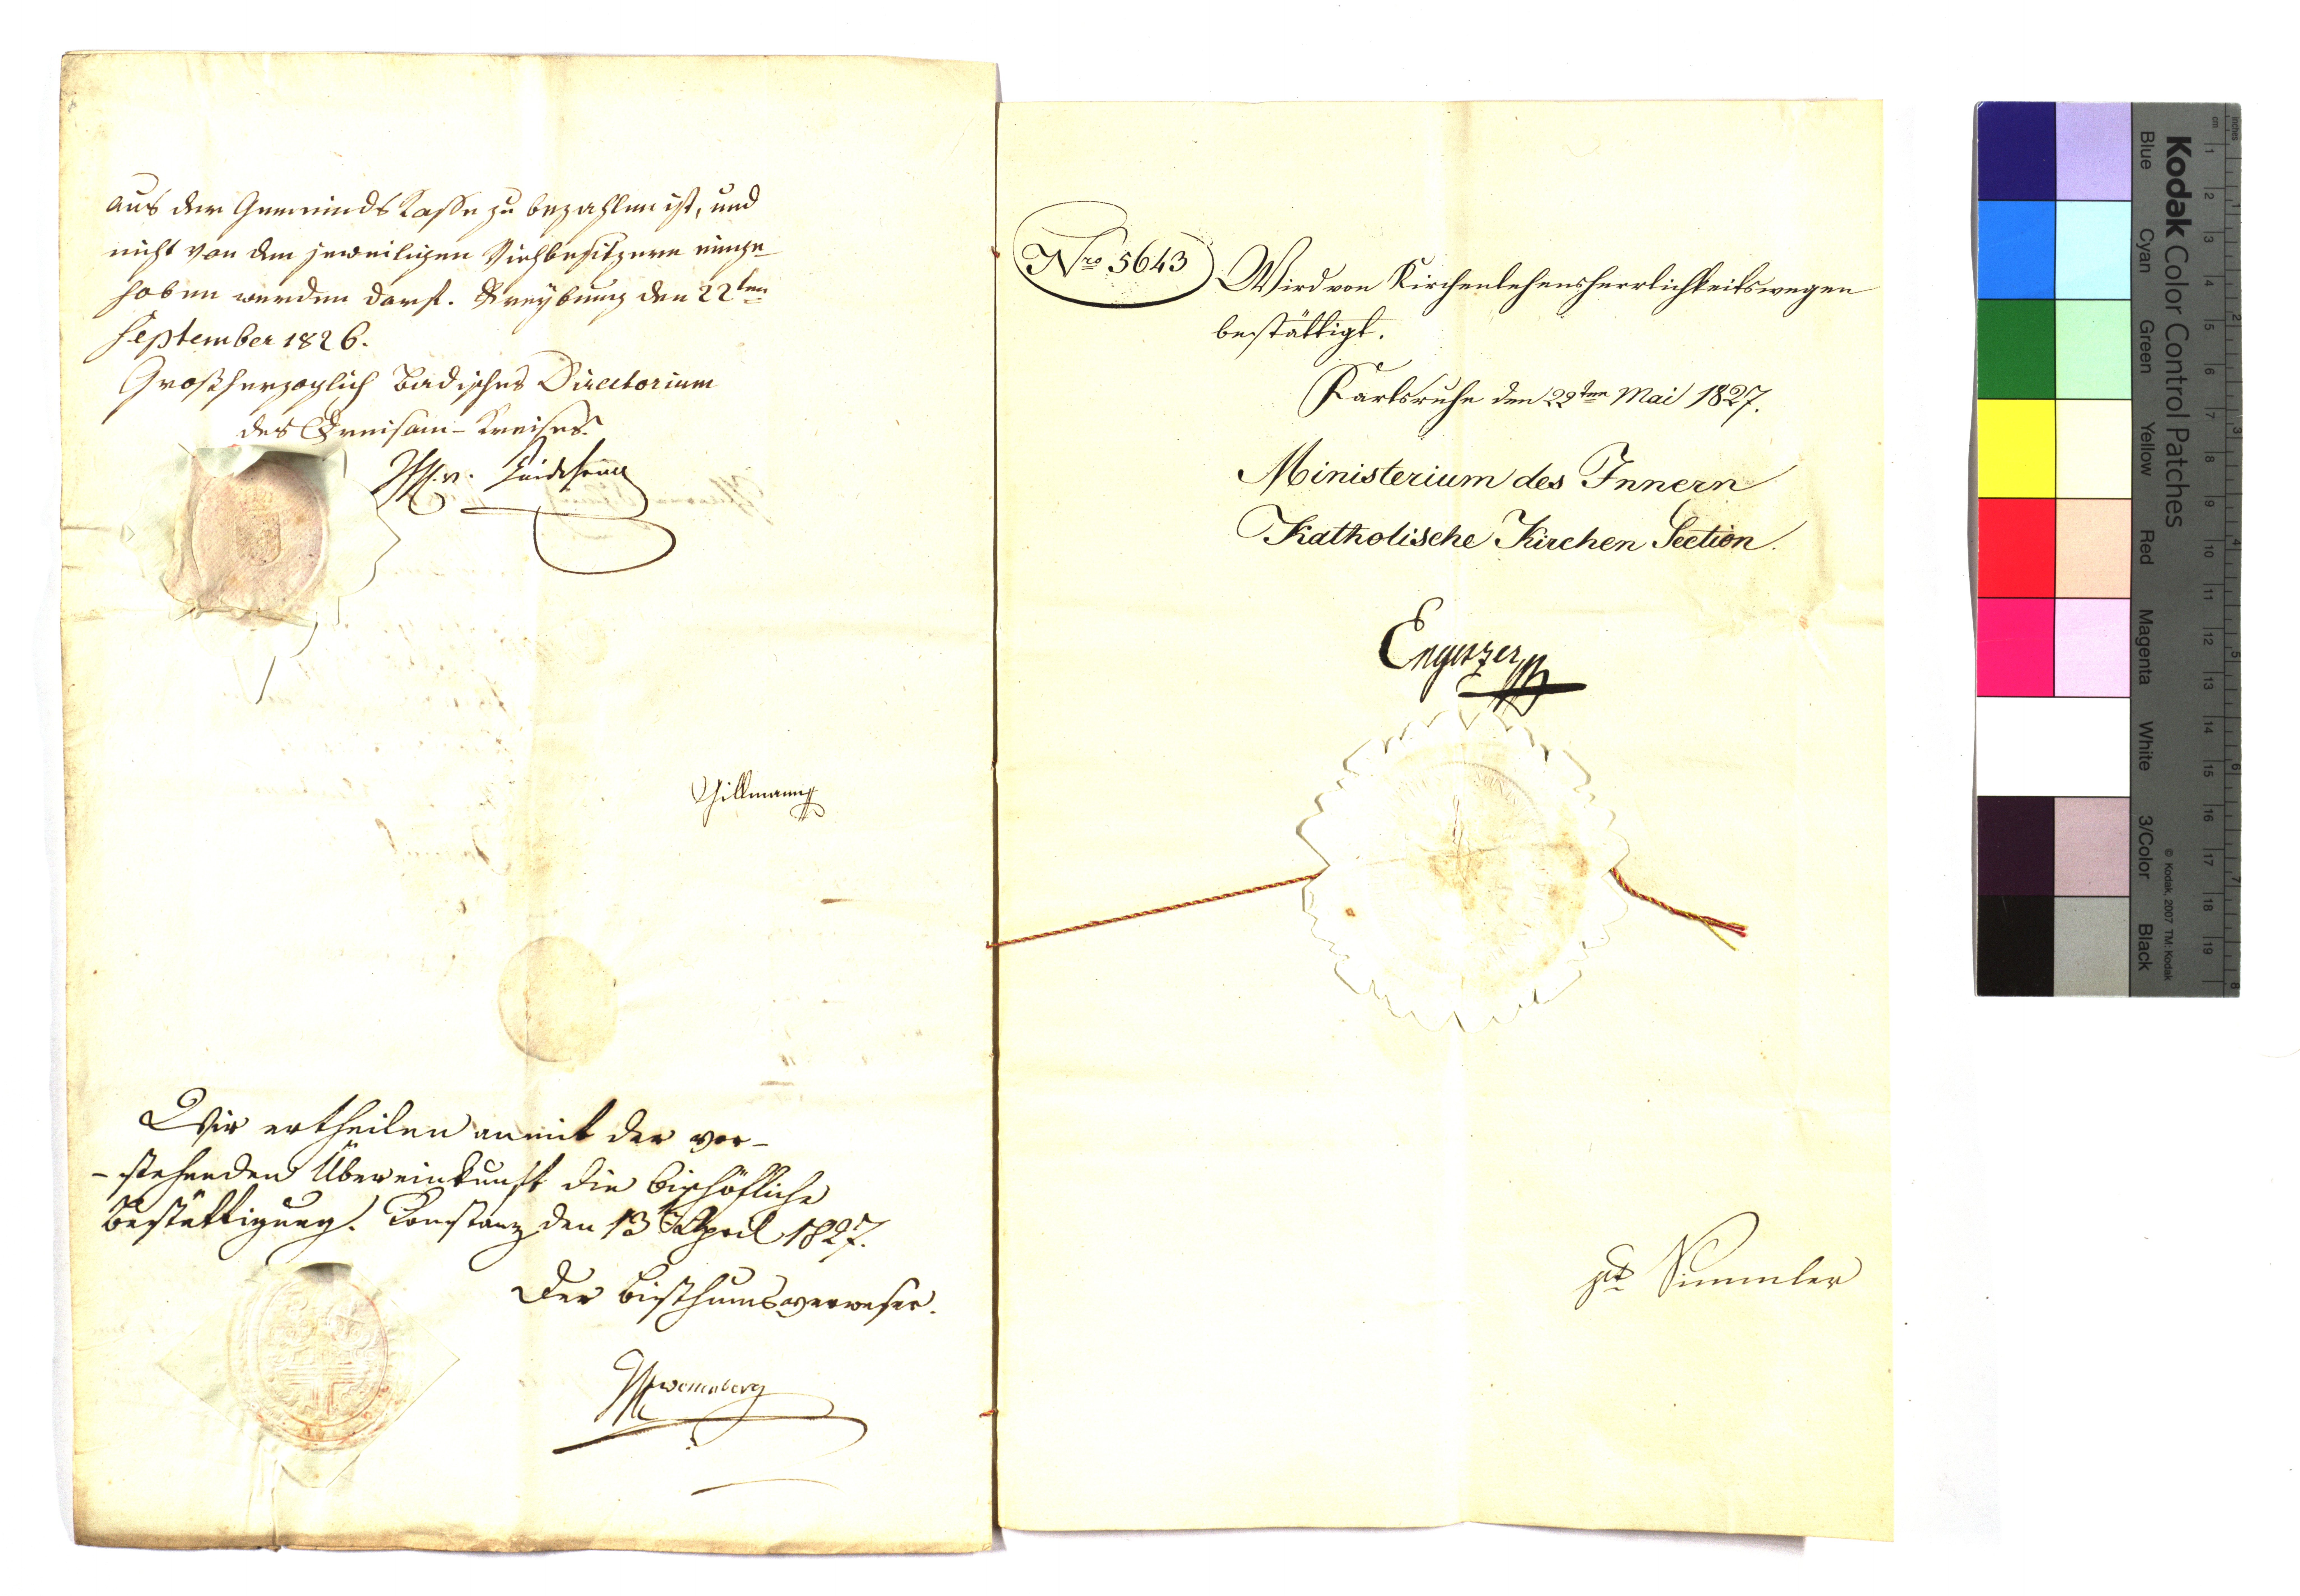 aus der Gemeinds Kasse zu bezahlen ist, und
nicht von den jeweiligen Viehbesitzern einge-
hoben werden darf. Freyburg den 22ten
September 1826.
Großherzoglich Badisches Directorium
des Dreisam-Kreises.
Hillmann
Wir ertheilen anmit der vor-
-stehenden Übereinkunft die bischöfliche
Bestättigung. Constanz den 13 April 1827.
Der Bisthumsverweser.
Wessenberg
Nro 5643
Wird von Kirchenlehensherrlichkeitswegen
bestättigt.
Karlsruhe den 22ten Mai 1827.
Ministerium des Innern
Katholische Kirchen Section.
Engesser
vdt Simmler
Kodak Color Control Patches
Blue Cyan Green Yellow Red Magenta White 3/Color Black
© Kodak, 2007 TM: Kodak
cm 1 2 3 4 5 6 7 8 9 10 11 12 13 14 15 16 17 18 19
inches 1 2 3 4 5 6 7 8